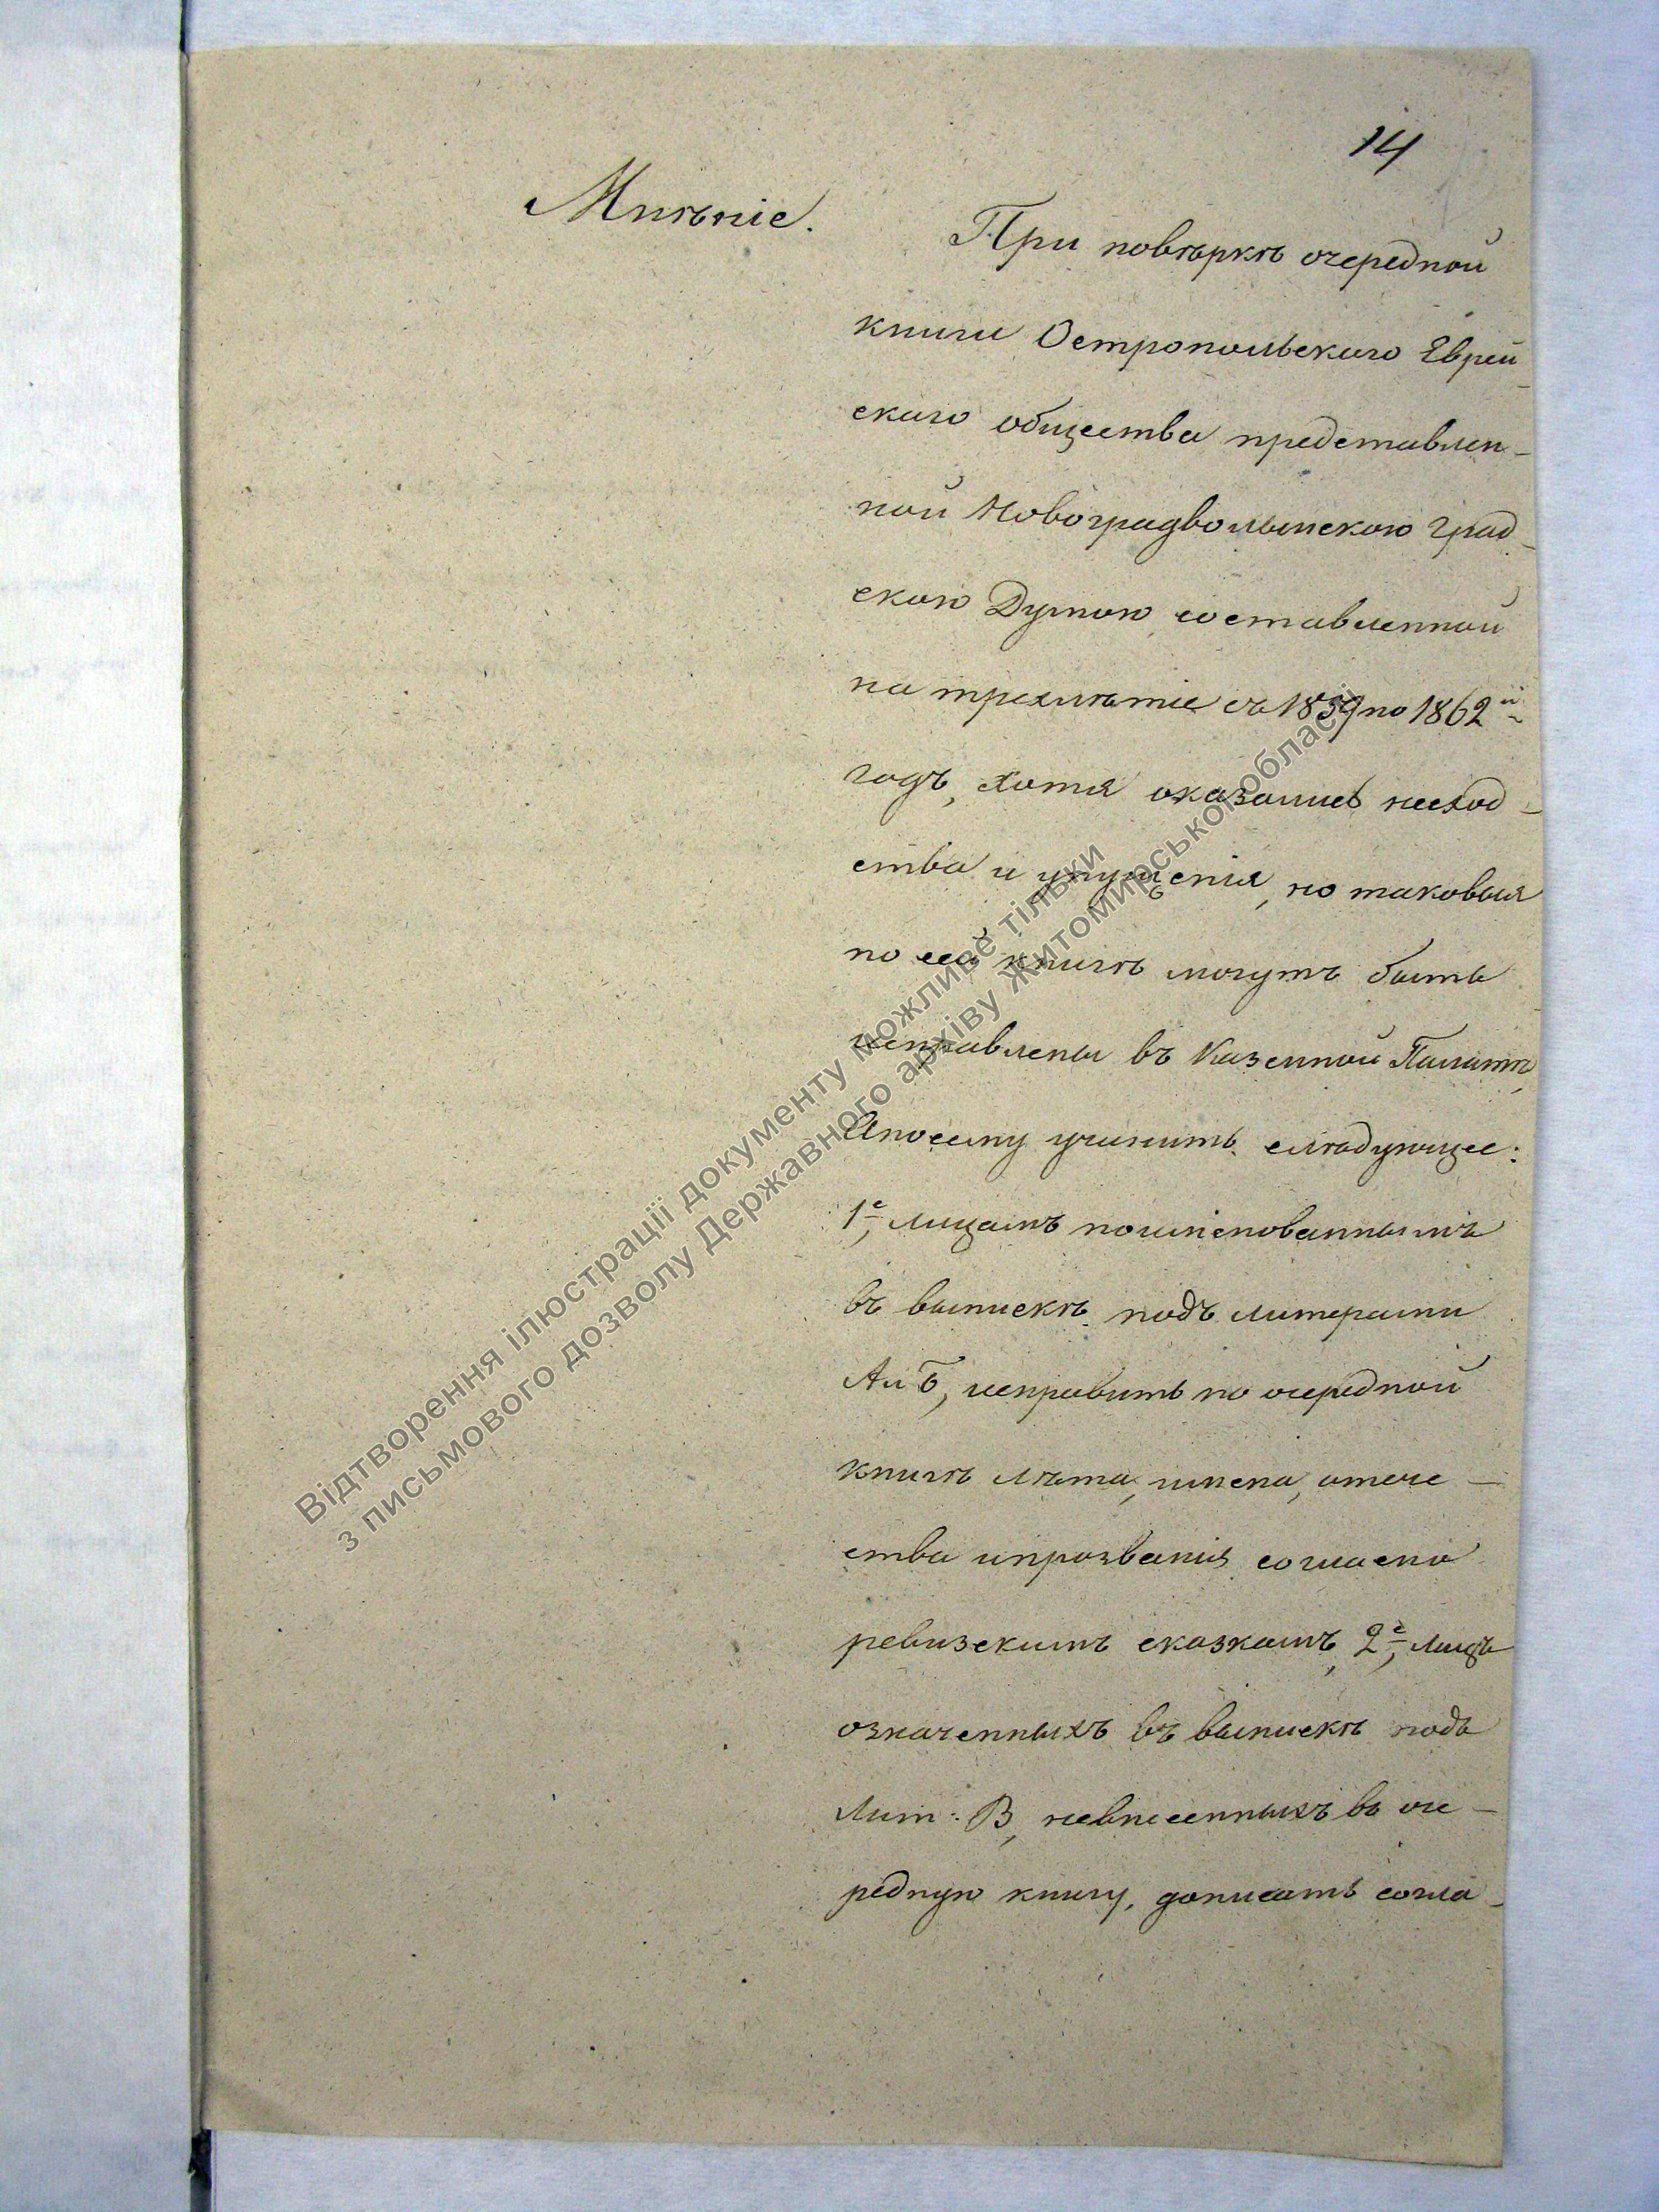 14
Мнѣніе.
При повѣркѣ очередной
книги Остропольскаго Еврей-
скаго общества представлен-
ной Новоградволынскою Град-
скою Думою составленной
на трехлѣтіе съ 1859 по 1862й
годъ, хотя оказались несход-
ства и упущенія, но таковыя
по сей книгѣ могутъ быть
исправлены въ Казенной Палатѣ,
Апосему учинить слѣдующее:
1е, лицамъ поименованнымъ
въ выпискѣ подъ литерами
А и Б, исправить по очередной
книгѣ лѣта, имена, отече-
ства ипрозванія согласно
ревизскимъ сказкамъ, 2е, лицъ
означенныхъ въ выпискѣ подъ
Лит: В, невнесенныхъ въ оче-
редную книгу, дописать согла-
Відтворення ілюстрації документу можливе тільки
з письмового дозволу Державного архіву Житомирської області